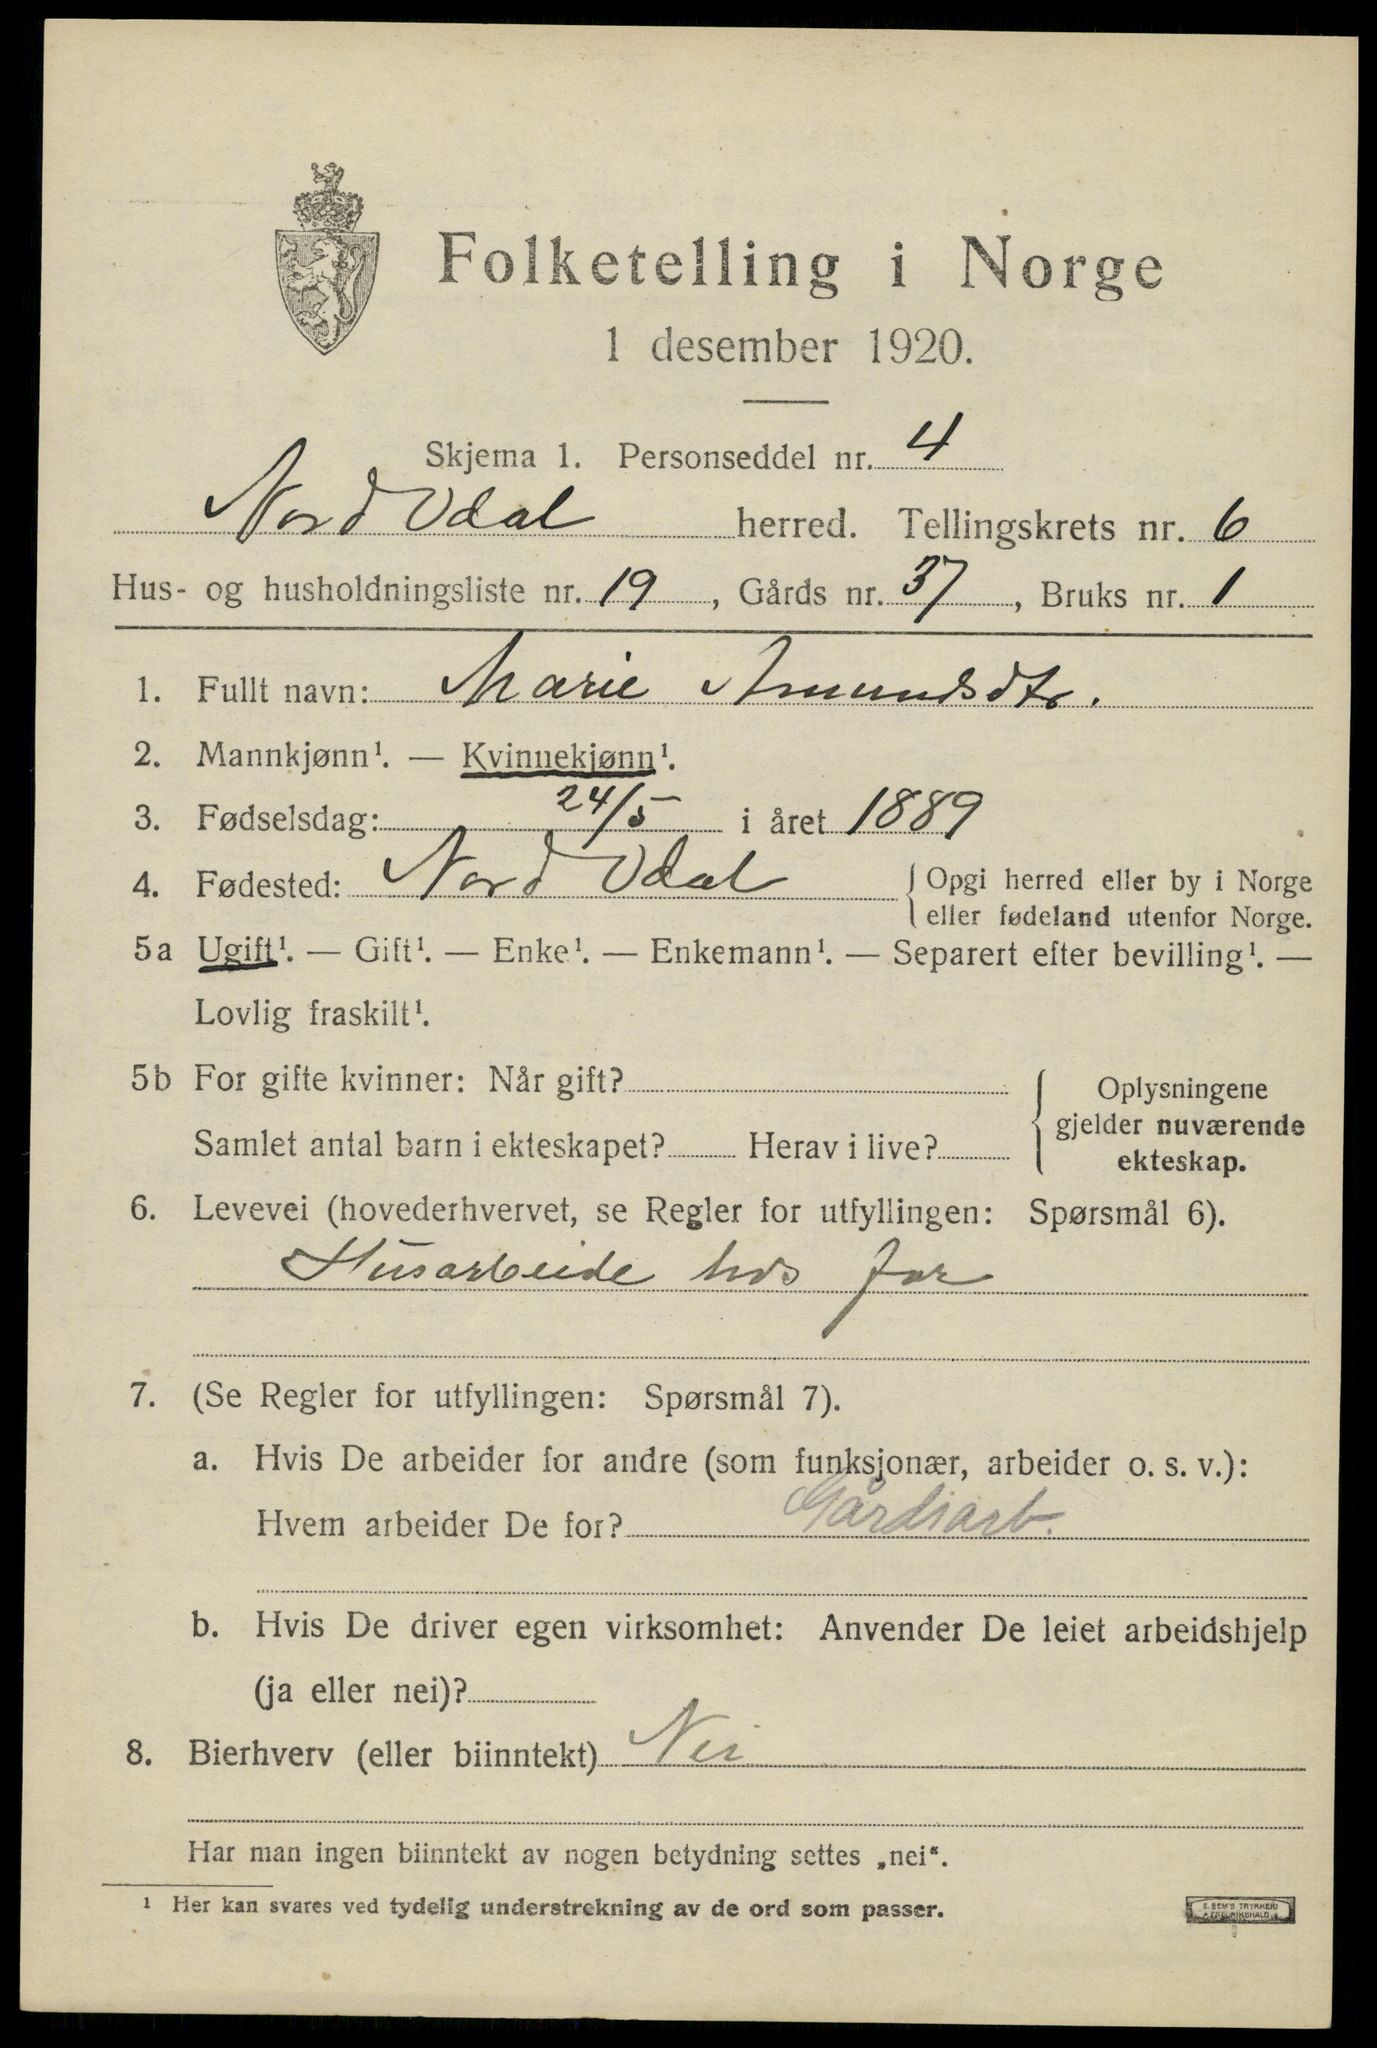 Folketelling i Norge
1 desember 1920.
Skjema 1. Personseddel nr. 4
Nord Odal herred. Tellingskrets nr. 6
Hus- og husholdningsliste nr. 19, Gårds nr. 37, Bruks nr. 1
1. Fullt navn: Marie Amundsdtr.
2. Mannkjønn¹. — Kvinnekjønn¹.
3. Fødselsdag: 24/5 i året 1889
4. Fødested: Nord Odal { Opgi herred eller by i Norge
eller fødeland utenfor Norge.
5a Ugift¹. — Gift¹. — Enke¹. — Enkemann¹. — Separert efter bevilling¹. —
Lovlig fraskilt¹.
5b For gifte kvinner: Når gift?
Samlet antal barn i ekteskapet? Herav i live?
{ Oplysningene
gjelder nuværende
ekteskap.
6. Levevei (hovederhvervet, se Regler for utfyllingen: Spørsmål 6).
Husarbeide hos far
7. (Se Regler for utfyllingen: Spørsmål 7).
a. Hvis De arbeider for andre (som funksjonær, arbeider o. s. v.):
Hvem arbeider De for? Gårdsarb.
b. Hvis De driver egen virksomhet: Anvender De leiet arbeidshjelp
(ja eller nei)?
8. Bierhverv (eller biinntekt) Nei
Har man ingen biinntekt av nogen betydning settes „nei“.
¹ Her kan svares ved tydelig understrekning av de ord som passer.
E. SEM'S TRYKKERI
FREDRIKSHALD